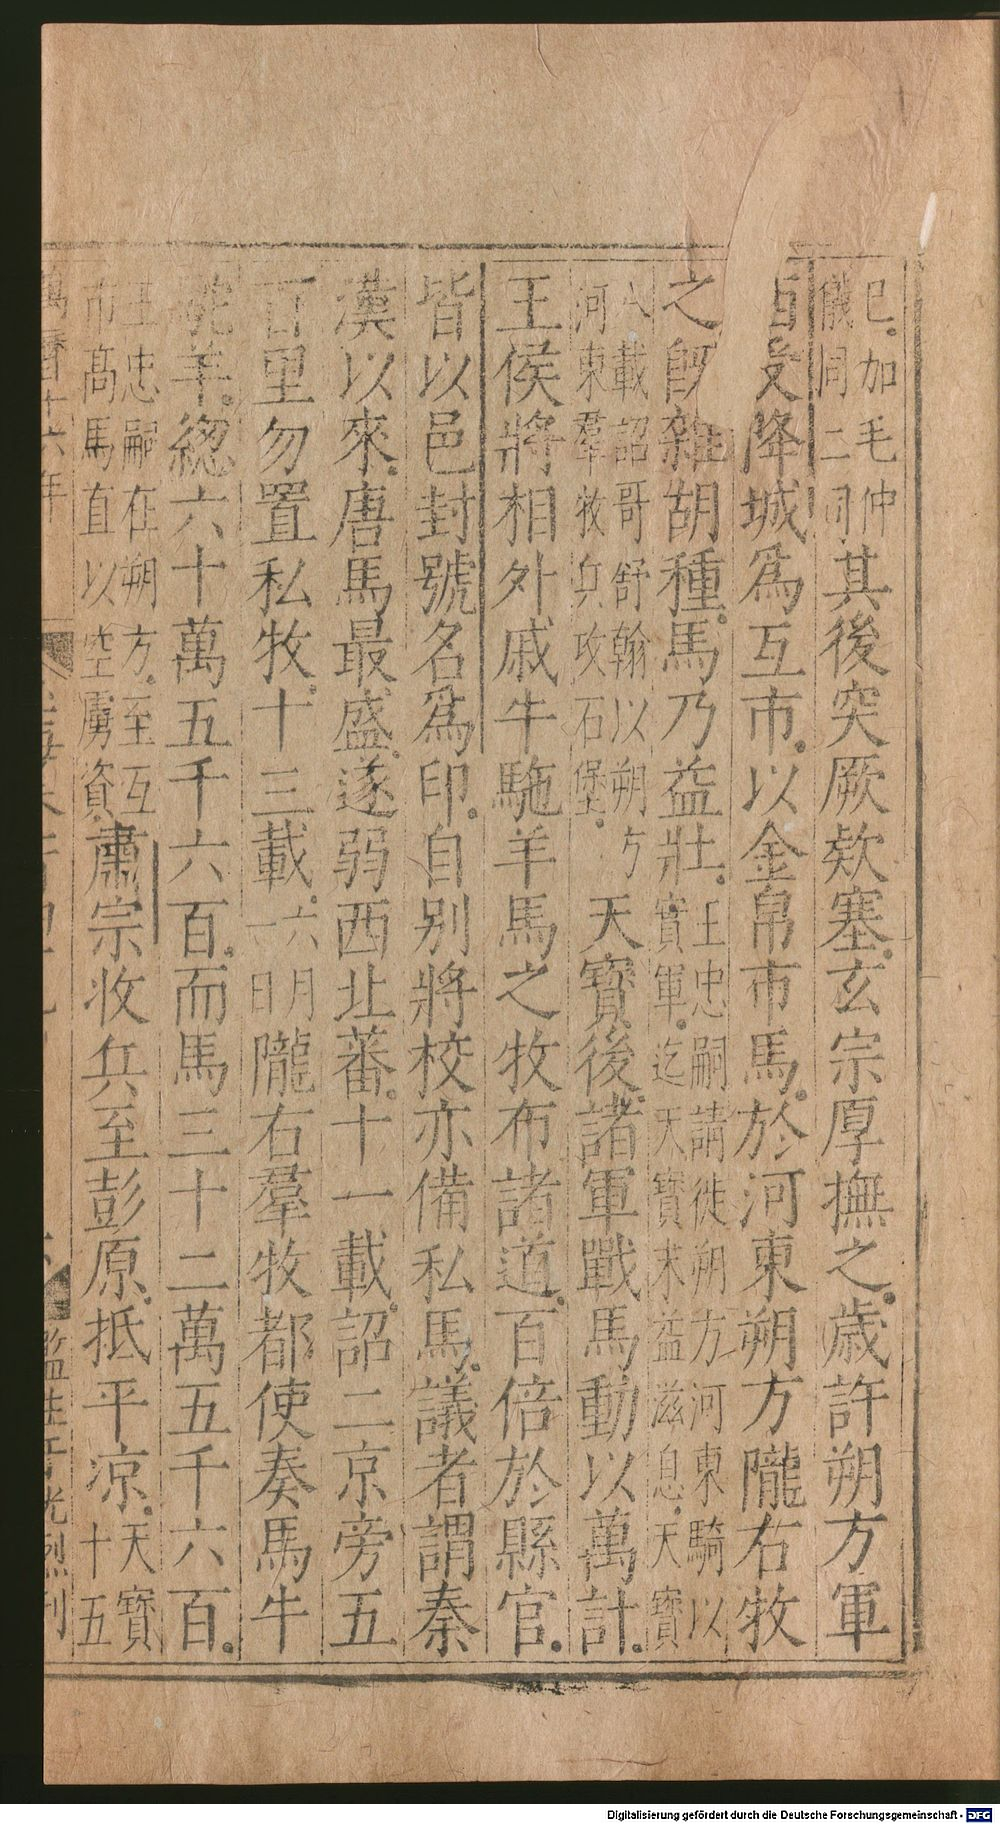 巳。加毛仲
儀同二司
其後突厥欵塞。玄宗厚撫之。歲許朔方軍
西受降城爲互市。以金帛市馬。於河東朔方隴右牧
之旣雜胡種。馬乃益壯。
王忠嗣請徙朔方河東騎以
實軍。迄天寶末益滋息。天寶
八載詔哥舒翰以朔方
河東羣牧兵攻石堡。
天寶後。諸軍戰馬動以萬計。
王侯將相外戚牛駞羊馬之牧布諸道。百倍於縣官。
皆以邑封號名爲印。自別將校亦備私馬。議者謂秦
漢以來。唐馬最盛。遂弱西北蕃。十一載。詔二京旁五
百里勿置私牧。十三載。
六月
一日
隴右羣牧都使奏馬牛
駞羊。緫六十萬五千六百。而馬三十二萬五千六百。
王忠嗣在朔方。至互
市高馬直以空虜資。
肅宗收兵至彭原。抵平凉。
天寶
十五
萬曆十六年
監生
光烈刊
Digitalisierung gefördert durch die Deutsche Forschungsgemeinschaft - DFG